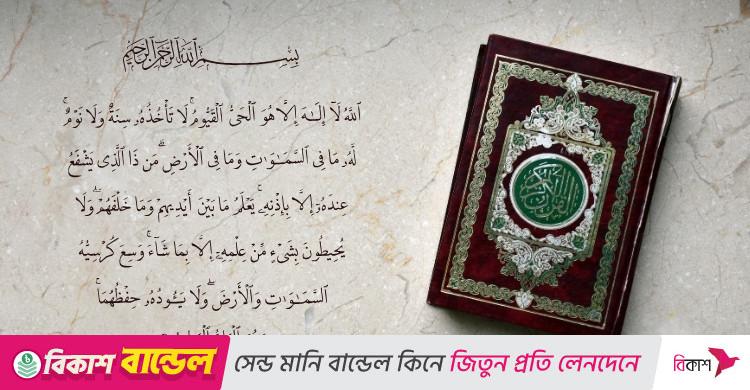 بِسْمِ ٱللَّهِ ٱلرَّحْمَٰنِ ٱلرَّحِيمِ
ٱللَّهُ لَآ إِلَـٰهَ إِلَّا هُوَ ٱلْحَىُّ ٱلْقَيُّومُ ۚ لَا تَأْخُذُهُۥ سِنَةٌ وَلَا نَوْمٌ ۚ
لَّهُۥ مَا فِى ٱلسَّمَـٰوَٰتِ وَمَا فِى ٱلْأَرْضِ ۗ مَن ذَا ٱلَّذِى يَشْفَعُ
عِندَهُۥٓ إِلَّا بِإِذْنِهِۦ ۚ يَعْلَمُ مَا بَيْنَ أَيْدِيهِمْ وَمَا خَلْفَهُمْ ۖ وَلَا
يُحِيطُونَ بِشَىْءٍ مِّنْ عِلْمِهِۦٓ إِلَّا بِمَا شَآءَ ۚ وَسِعَ كُرْسِيُّهُ
ٱلسَّمَـٰوَٰتِ وَٱلْأَرْضَ ۖ وَلَا يَـُٔودُهُۥ حِفْظُهُمَا ۚ
القرآن الكريم
বিকাশ বান্ডেল সেন্ড মানি বান্ডেল কিনে জিতুন প্রতি লেনদেনে বিকাশ